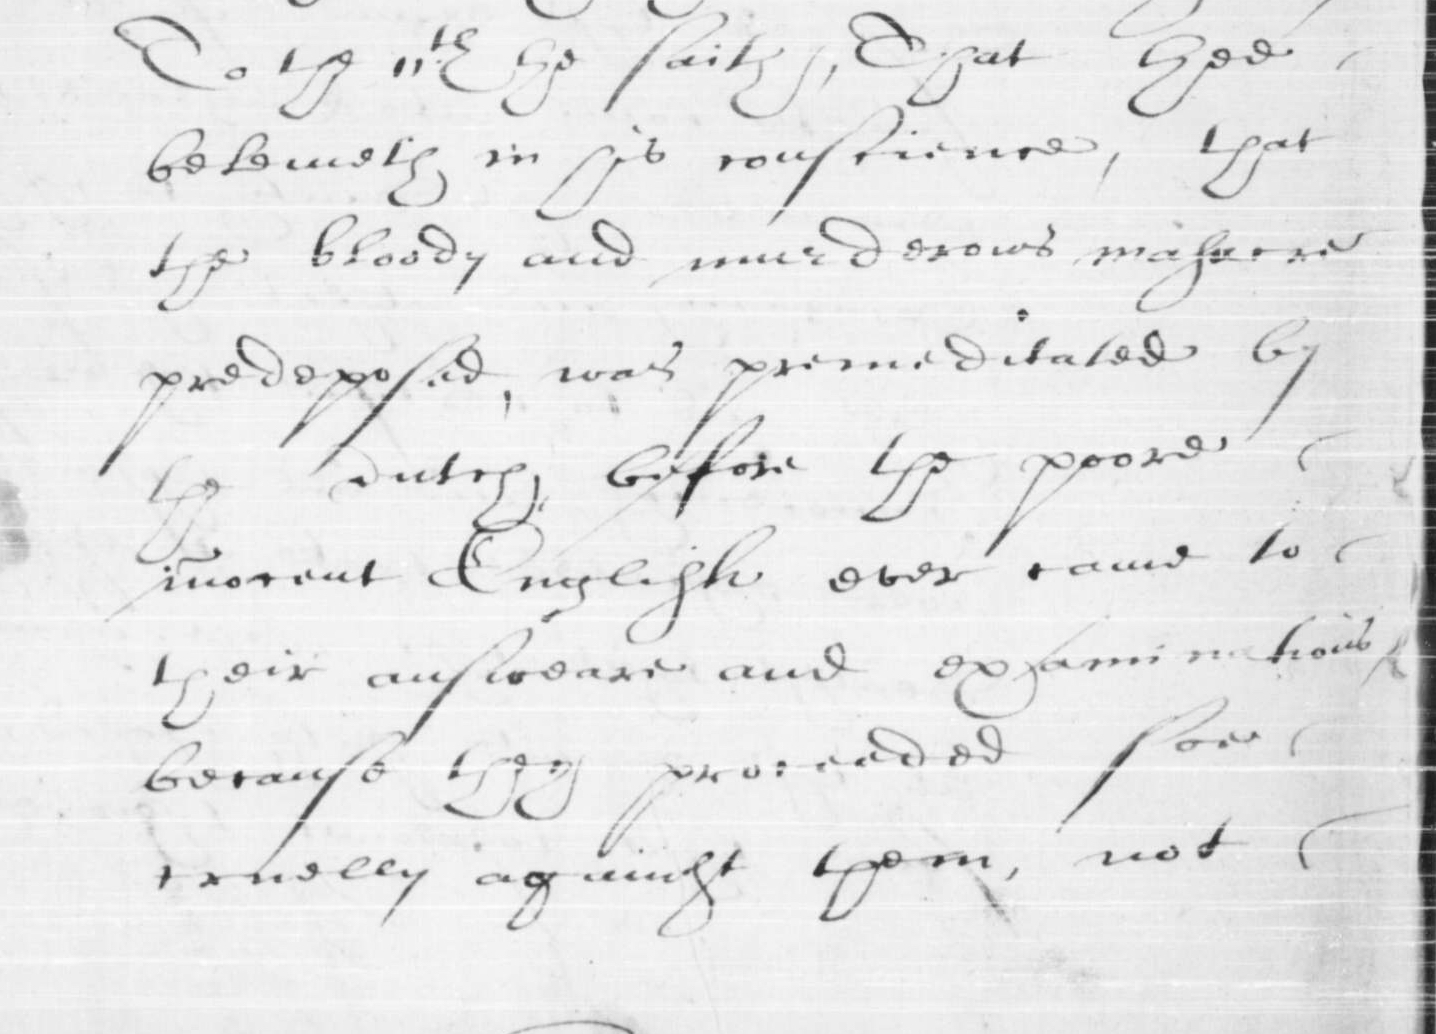 To the 11th he saith, That hee
beleiueth in his conscience, that
the bloody and murderows massacre
predeposed, was premeditated by
the dutch, before the poore
inocent English ever came to
their answeare and examinations
because they proceeded soe
cruelly against them, not